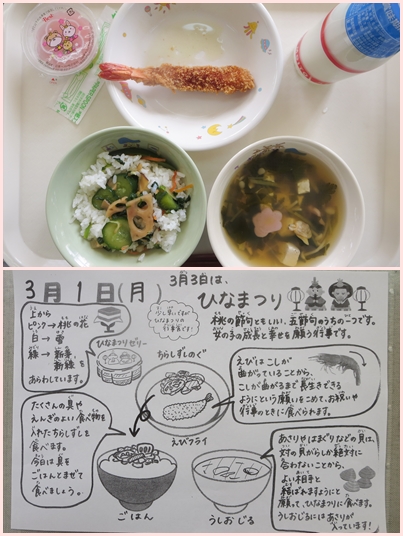 3月1日(月)
3月3日は、
ひなまつり
桃の節句ともいい、五節句のうちの一つです。
女の子の成長と幸せを願う行事です。
上から
ピンク→桃の花
白→雪
緑→新芽、
新緑を
あらわしています。
ひなまつりゼリー
少し早いですが
ひなまつりの
行事食です!
ちらしずしのぐ
えびフライ
えびはこしが
曲がっていることから、
こしが曲がるまで長生きできる
ようにという願いをこめて、お祝いや
行事のときに食べられます。
たくさんの具や
えんぎのよい食べ物を
入れたちらしずしを
食べます。
今日は具を
ごはんとまぜて
食べましょう。
ごはん
うしおじる
あさりやはまぐりなどの貝は、
対の貝がらしか絶対に
合わないことから、
よい相手と
結ばれますようにと
願って、ひなまつりに食べます。
うしおじるにはあさりが
入っています!